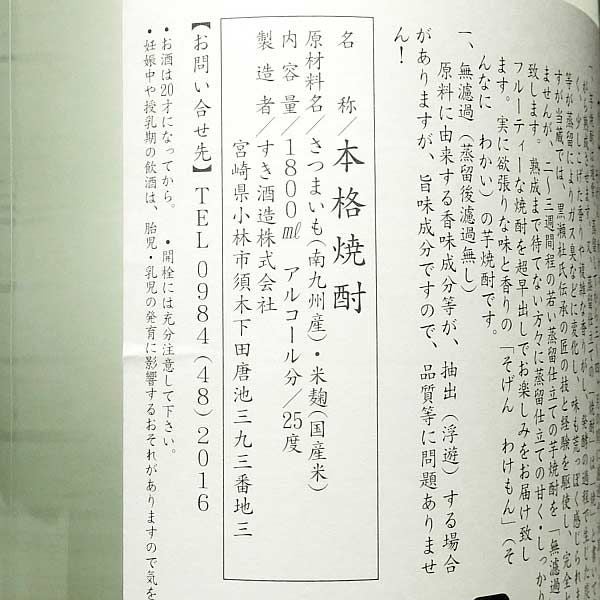 等が蒸留によりガス臭などに変化し、味も荒っぽく感じられま
すが当蔵では、黒瀬杜氏伝承の匠の技と経験を駆使し、完全と
ませんが、二〜三週間程の若い蒸留仕立ての芋焼酎を「無濾過
致します。熟成まで待てない方々に蒸留仕立ての甘く・しっかり
フルーティーな焼酎を超早出しでお楽しみをお届け致し
ます。実に欲張りな味と香りの「そげん わけもん」(そ
んなに わかい)の芋焼酎です。
一、無濾過(蒸留後濾過無し)
原料に由来する香味成分等が、抽出(浮遊)する場合
がありますが、旨味成分ですので、品質等に問題ありませ
ん!
名称/本格焼酎
原材料名/さつまいも(南九州産)・米麹(国産米)
内容量/1800㎖ アルコール分/25度
製造者/すき酒造株式会社
宮崎県小林市須木下田唐池三九三番地三
【お問い合せ先】TEL0984(48)2016
・お酒は20才になってから。 ・開栓には充分注意して下さい。
・妊娠中や授乳期の飲酒は、胎児・乳児の発育に影響するおそれがありますので気を